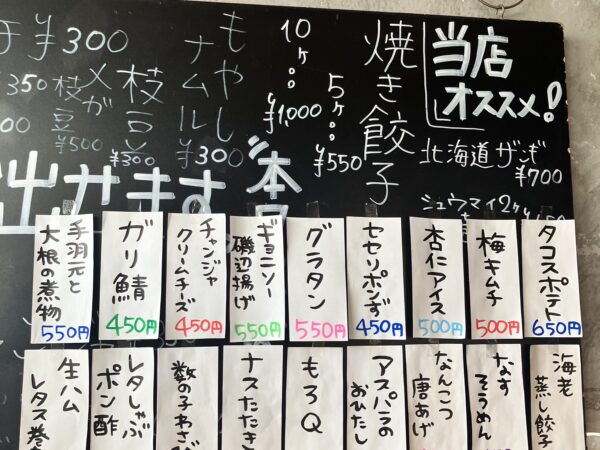 当店
オススメ!
北海道ザンギ
¥700
シュウマイ2ヶ
焼き餃子
5ヶ…
¥550
10ヶ…
¥1,000
もやし
ナムル
¥300
枝豆
¥300
メガ
枝豆
¥500
¥300
350
出せます
本
タコスポテト
650円
梅キムチ
500円
杏仁アイス
500円
セセリポンず
450円
グラタン
550円
ギョニソー
磯辺揚げ
550円
チャンジャ
クリームチーズ
450円
ガリ鯖
450円
手羽元と
大根の煮物
550円
海老
蒸し餃子
なす
そうめん
なんこつ
唐あげ
アスパラの
おひたし
もろQ
ナスたたき
数の子わさび
レタしゃぶ
ポン酢
生ハム
レタス巻